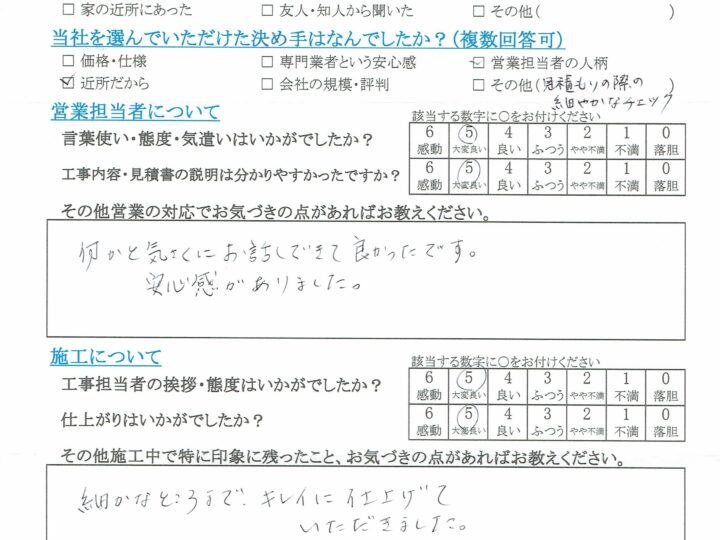 □ 家の近所にあった □ 友人・知人から聞いた □ その他( )
当社を選んでいただけた決め手はなんでしたか？（複数回答可）
□ 価格・仕様 □ 専門業者という安心感 ☑ 営業担当者の人柄
☑ 近所だから □ 会社の規模・評判 □ その他(見積もりの際の )
細やかなチェック
営業担当者について
該当する数字に○をお付けください
言葉使い・態度・気遣いはいかがでしたか？
6 5 4 3 2 1 0
感動 大変良い 良い ふつう やや不満 不満 落胆
工事内容・見積書の説明は分かりやすかったですか？
6 5 4 3 2 1 0
感動 大変良い 良い ふつう やや不満 不満 落胆
その他営業の対応でお気づきの点があればお教えください。
何かと気さくにお話しできて良かったです。
安心感がありました。
施工について
該当する数字に○をお付けください
工事担当者の挨拶・態度はいかがでしたか？
6 5 4 3 2 1 0
感動 大変良い 良い ふつう やや不満 不満 落胆
仕上がりはいかがでしたか？
6 5 4 3 2 1 0
感動 大変良い 良い ふつう やや不満 不満 落胆
その他施工中で特に印象に残ったこと、お気づきの点があればお教えください。
細かなところまで、キレイに仕上げて
いただきました。